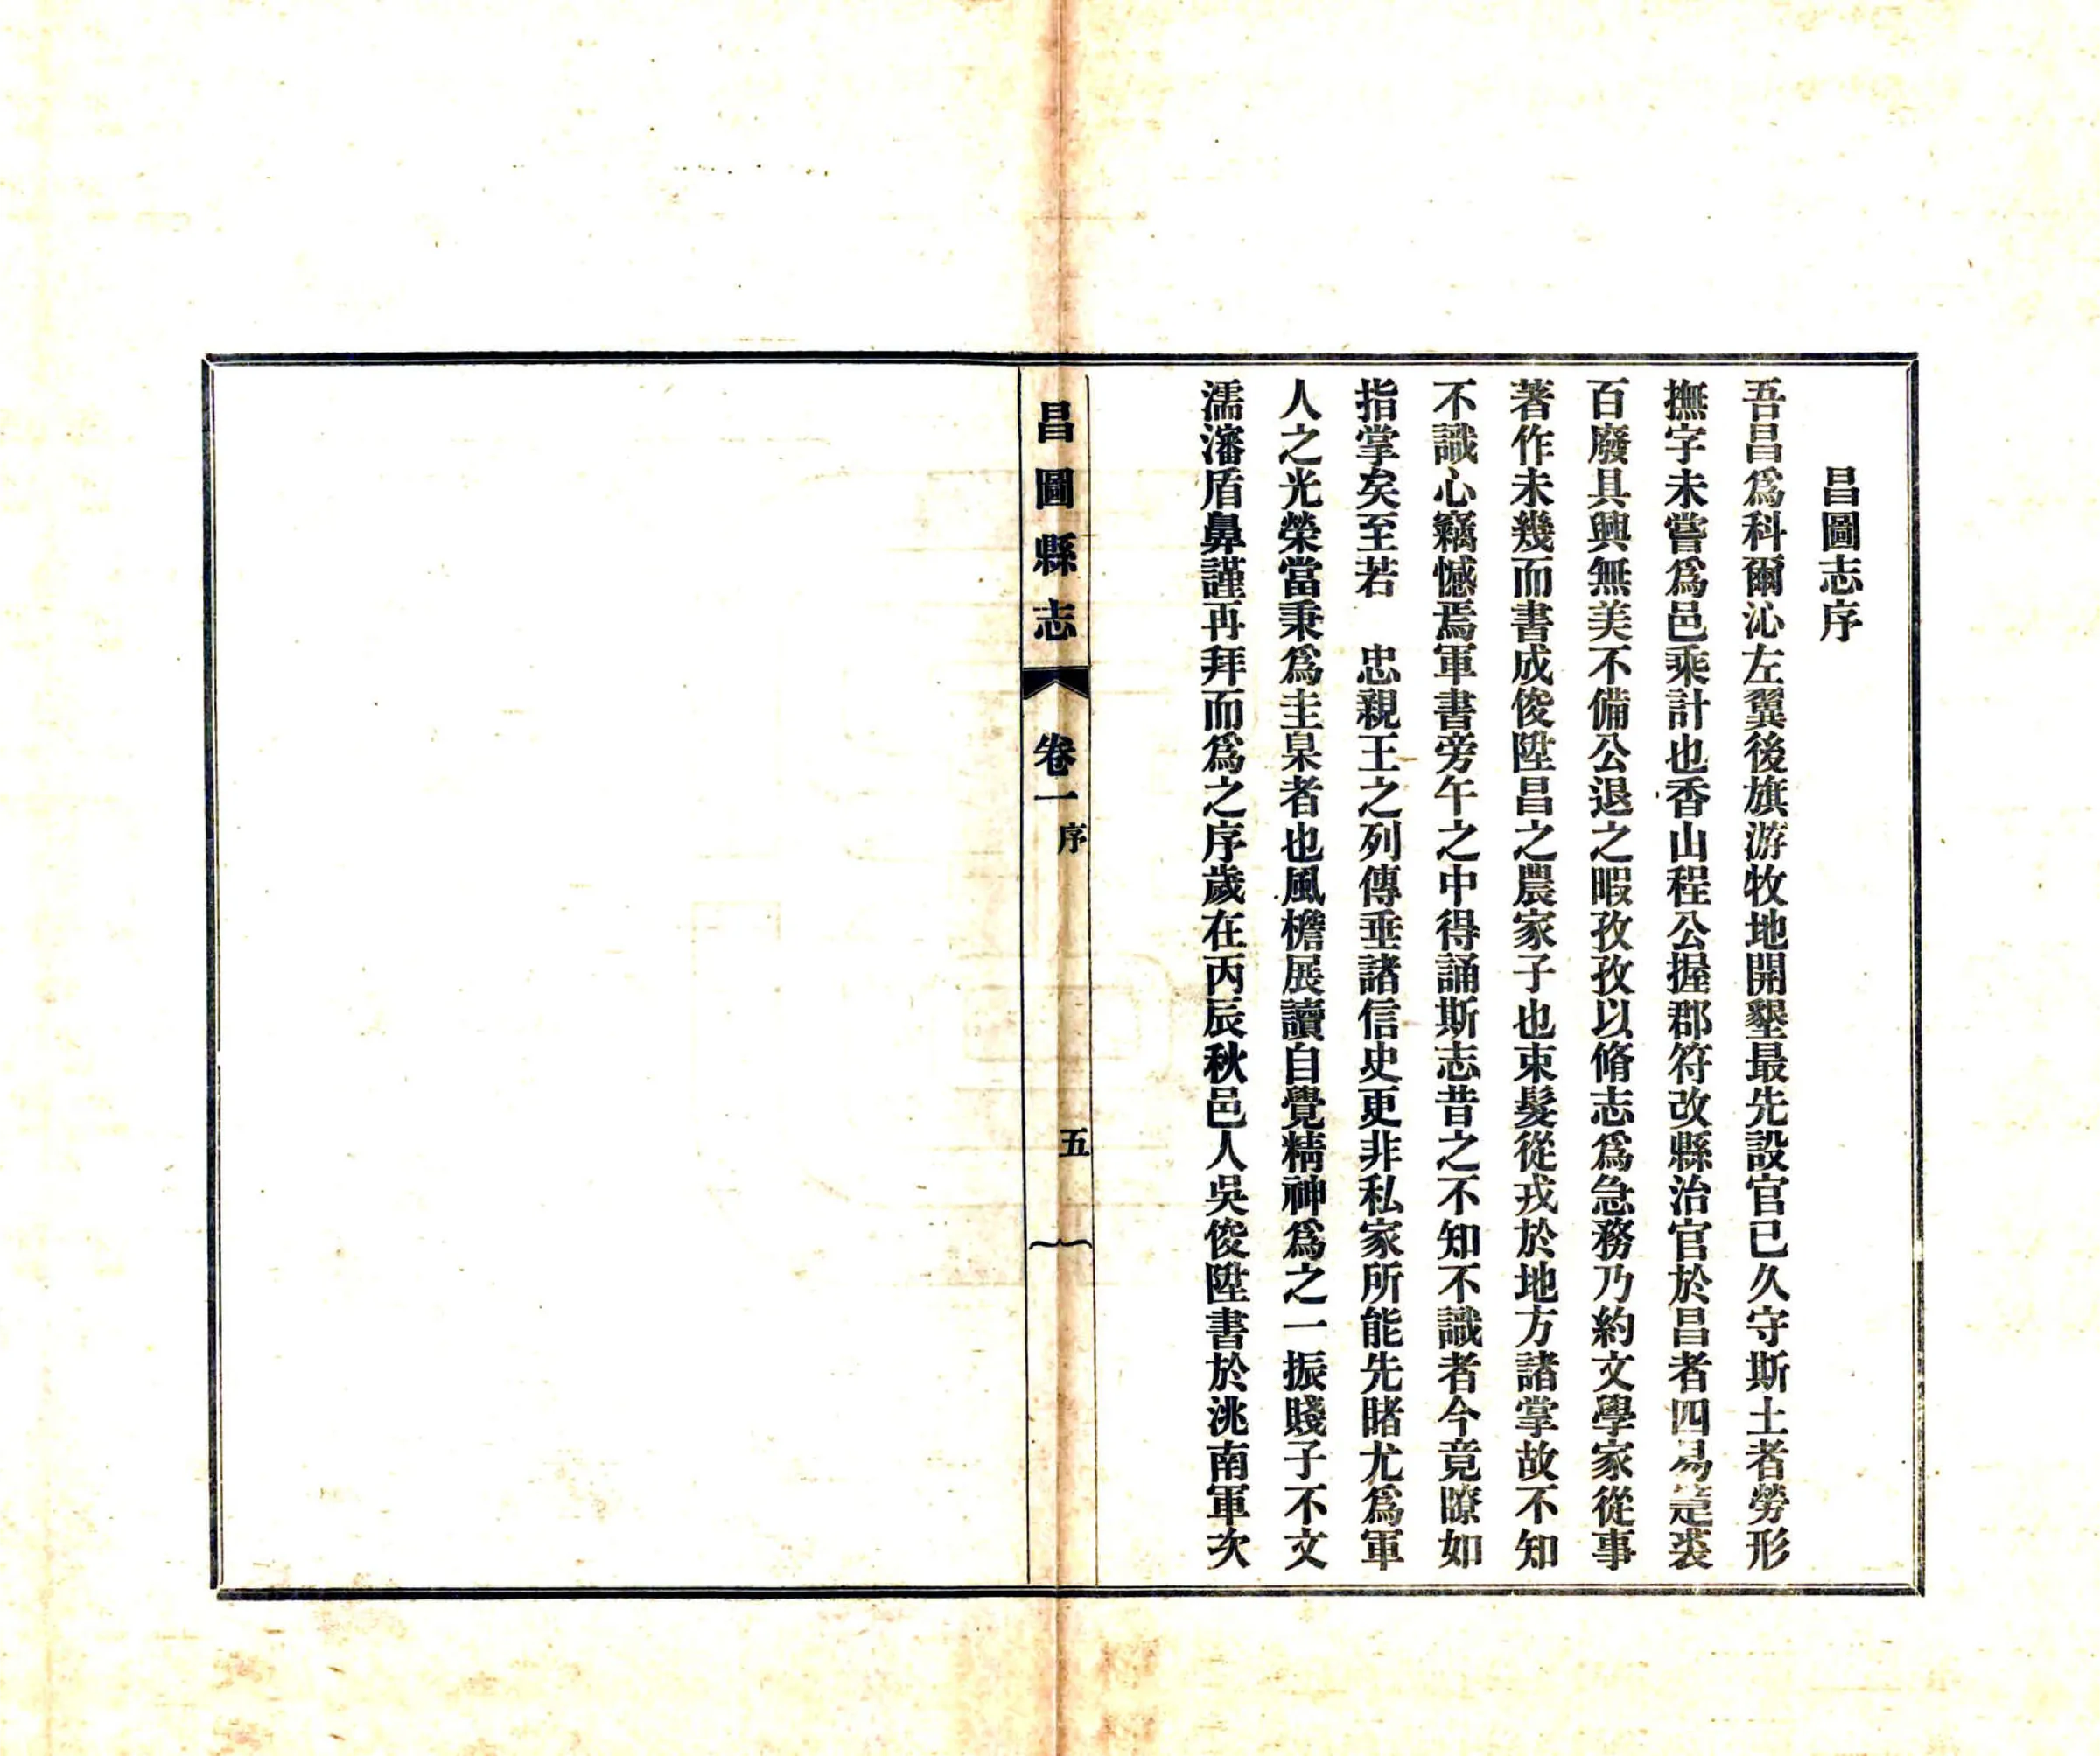 昌圖志序
吾昌爲科爾沁左翼後旗游牧地開墾最先設官已久守斯土者勞形
撫字未嘗爲邑乘計也香山程公握郡符改縣治官於昌者四易箑裘
百廢具興無美不備公退之暇孜孜以脩志爲急務乃約文學家從事
著作未幾而書成俊陞昌之農家子也束髮從戎於地方諸掌故不知
不識心竊憾焉軍書旁午之中得誦斯志昔之不知不識者今竟瞭如
指掌矣至若　忠親王之列傳垂諸信史更非私家所能先睹尤爲軍
人之光榮當秉爲主臬者也風檐展讀自覺精神爲之一振賤子不文
濡瀋盾鼻謹再拜而爲之序歲在丙辰秋邑人吳俊陞書於洮南軍次
昌圖縣志　卷一　序　五